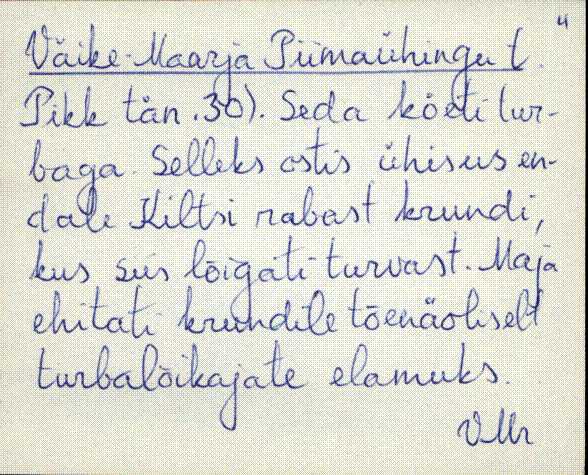 4
Väike-Maarja Piimaühingu (
Pikk tän. 30). Seda köeti tur-
baga. Selleks ostis ühisus en-
dale Kiltsi rabast krundi,
kus siis lõigati turvast. Maja
ehitati krundile tõenäoliselt
turbalõikajate elamuks.